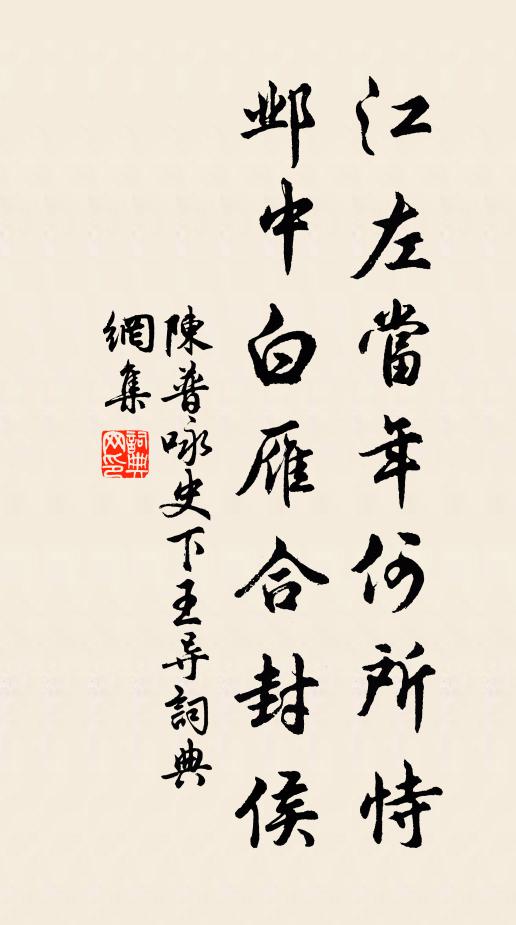 江左當年何所恃
邺中白雁合封侯
陳普咏史下王导詞典
網集
詞典
网印